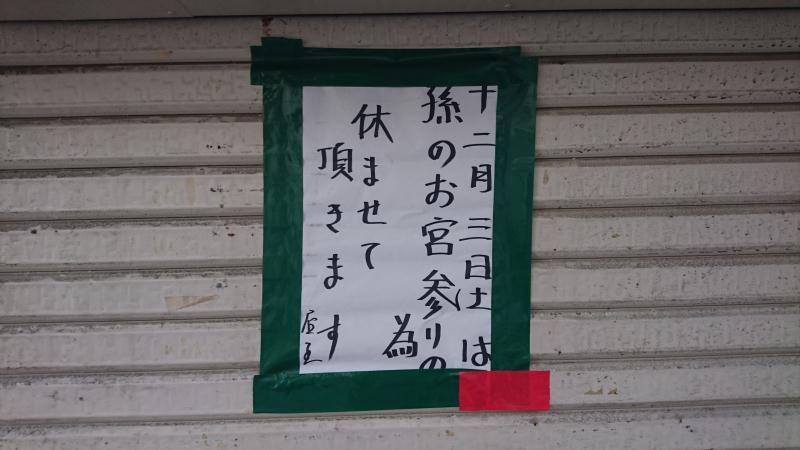 十二月三日(土)は
孫のお宮参りの
為
休ませて
頂きます
店主